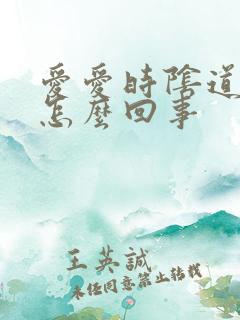 愛愛時陰道
怎麼回事
王英誠
未經同意禁止轉載